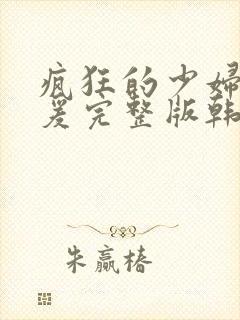 疯狂的少妇
爰完整版韩
朱赢椿